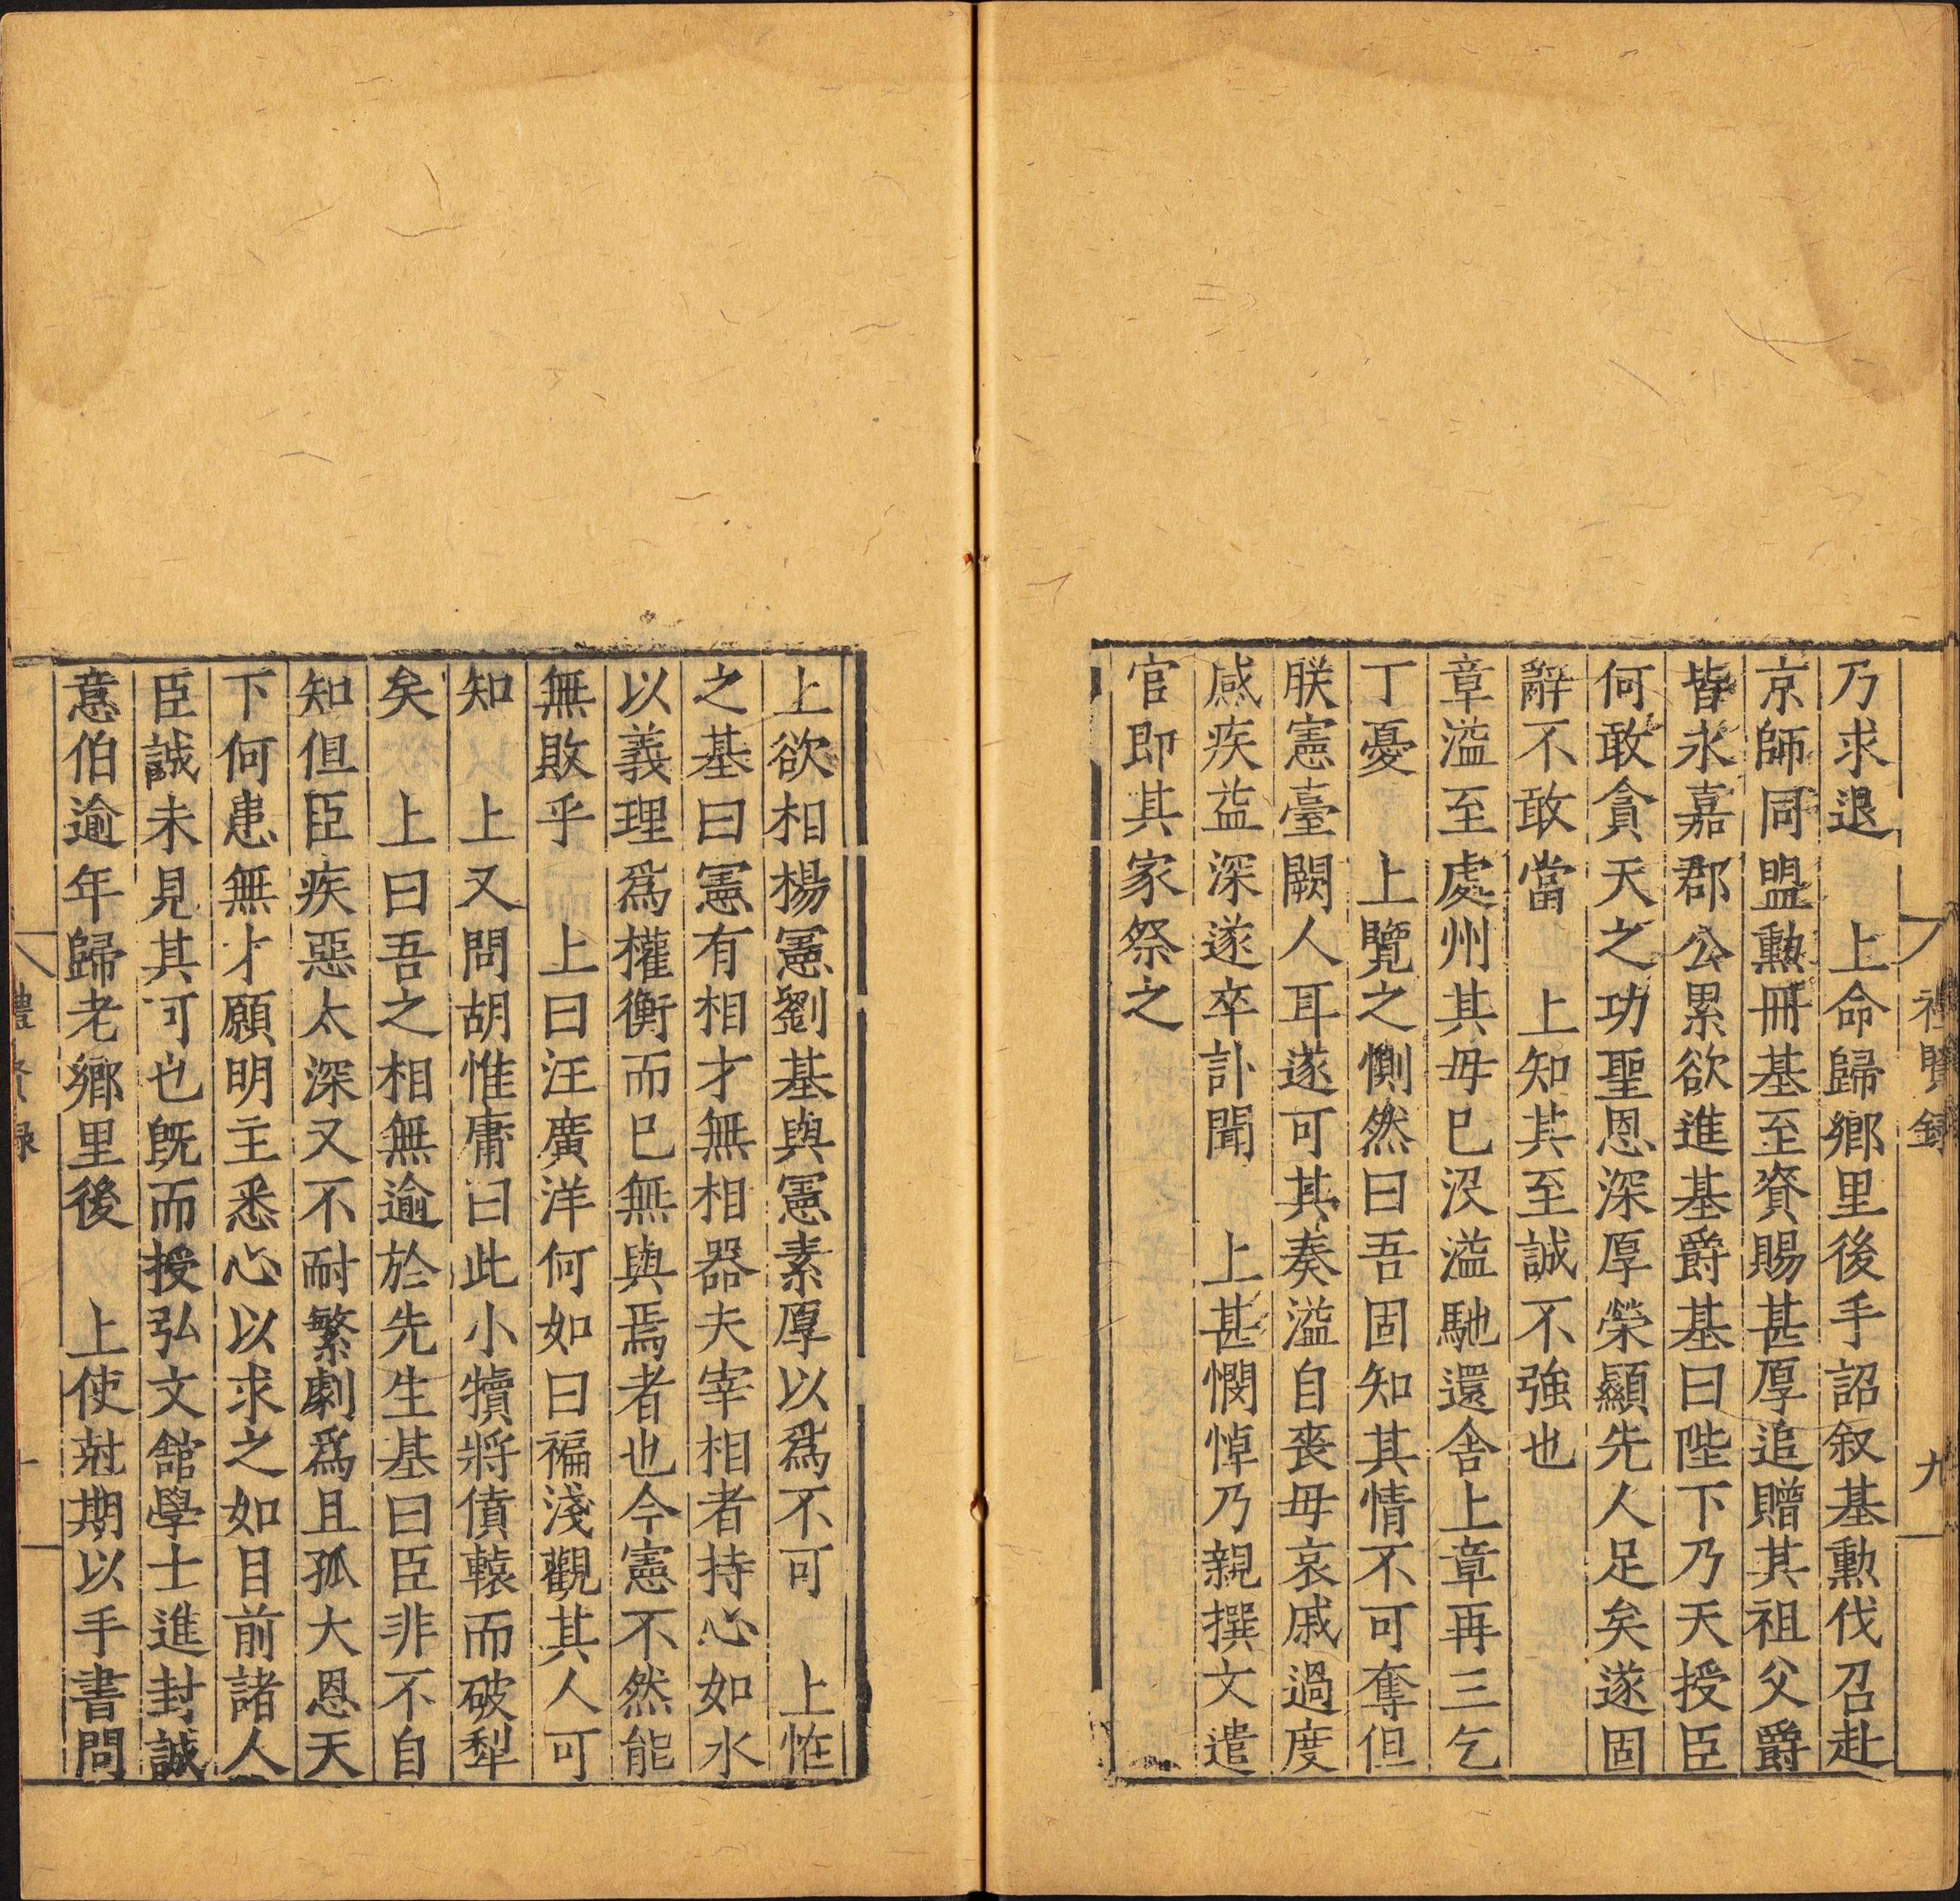 禮賢錄 九
乃求退　上命歸鄉里後手詔叙基勲伐召赴
京師同盟勲冊基至賚賜甚厚追贈其祖父爵
皆永嘉郡公累欲進基爵基曰陛下乃天授臣
何敢貪天之功聖恩深厚榮顯先人足矣遂固
辭不敢當　上知其至誠不強也
章溢至處州其母已沒溢馳還舍上章再三乞
丁憂　上覽之惻然曰吾固知其情不可奪但
朕憲臺闕人耳遂可其奏溢自喪母哀戚過度
感疾益深遂卒訃聞　上甚憫悼乃親撰文遣
官即其家祭之
上欲相楊憲劉基與憲素厚以為不可　上恠
之基曰憲有相才無相器夫宰相者持心如水
以義理為權衡而已無與焉者也今憲不然能
無敗乎　上曰汪廣洋何如曰褊淺觀其人可
知　上又問胡惟庸曰此小犢將僨轅而破犁
矣　上曰吾之相無逾於先生基曰臣非不自
知但臣疾惡太深又不耐繁劇為且孤大恩天
下何患無才願明主悉心以求之如目前諸人
臣誠未見其可也既而授弘文舘學士進封誠
意伯逾年歸老鄉里後　上使尅期以手書問
禮賢錄